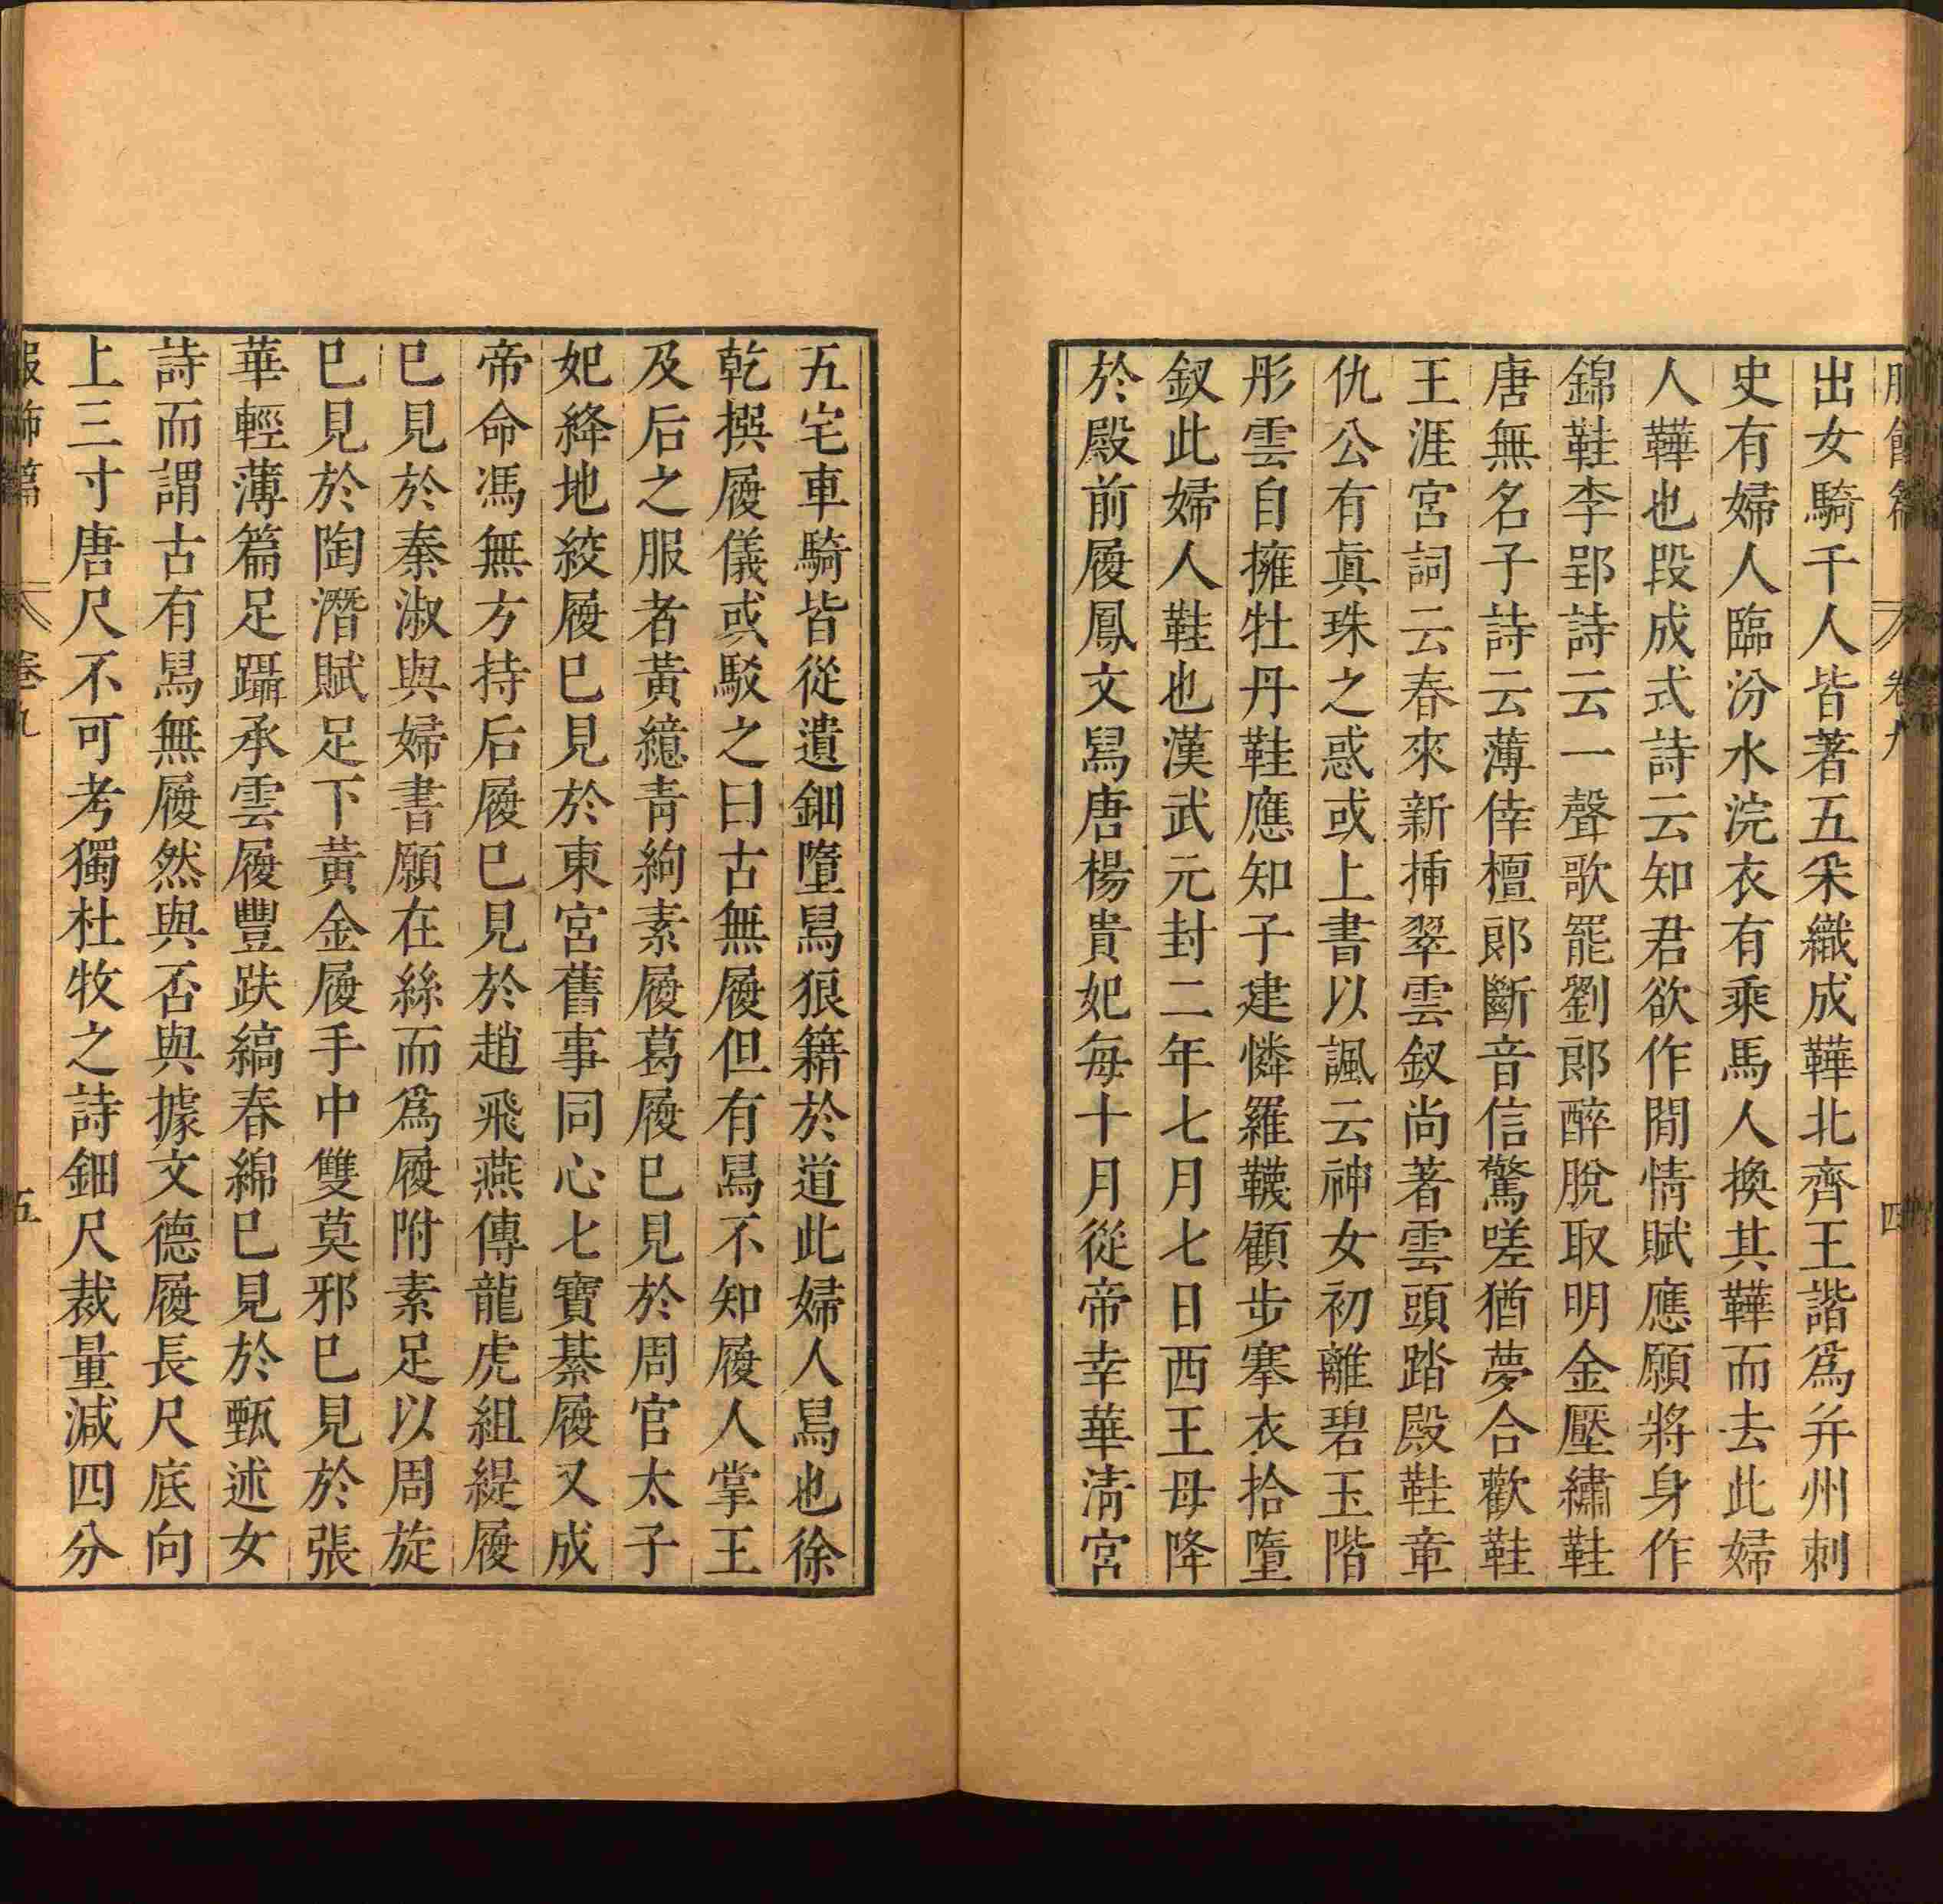 卷九 四
出女騎千人皆著五采織成鞾北齊王諧爲并州刺
史有婦人臨汾水浣衣有乘馬人換其鞾而去此婦
人鞾也段成式詩云知君欲作閒情賦應願將身作
錦鞋李郢詩云一聲歌罷劉郎醉脫取明金壓繡鞋
唐無名子詩云薄倖檀郎斷音信驚嗟猶夢合歡鞋
王涯宮詞云春來新揷翠雲釵尚著雲頭踏殿鞋章
仇公有眞珠之惑或上書以諷云神女初離碧玉階
彤雲自擁牡丹鞋應知子建憐羅韈顧步搴衣拾墮
釵此婦人鞋也漢武元封二年七月七日西王母降
於殿前履鳳文舄唐楊貴妃每十月從帝幸華淸宮
五宅車騎皆從遺鈿墮舄狼籍於道此婦人舄也徐
乾撰履儀或駁之曰古無履但有舄不知履人掌王
及后之服者黃繶靑絇素履葛履已見於周官太子
妃絳地絞履已見於東宮舊事同心七寶綦履又成
帝命馮無方持后履已見於趙飛燕傳龍虎組緹履
已見於秦淑與婦書願在絲而爲履附素足以周旋
已見於陶潛賦足下黃金履手中雙莫邪已見於張
華輕薄篇足躡承雲履豐趺縞春綿已見於甄述女
詩而謂古有舄無履然與否與據文德履長尺底向
上三寸唐尺不可考獨杜牧之詩鈿尺裁量減四分
服飾篇 卷九 五